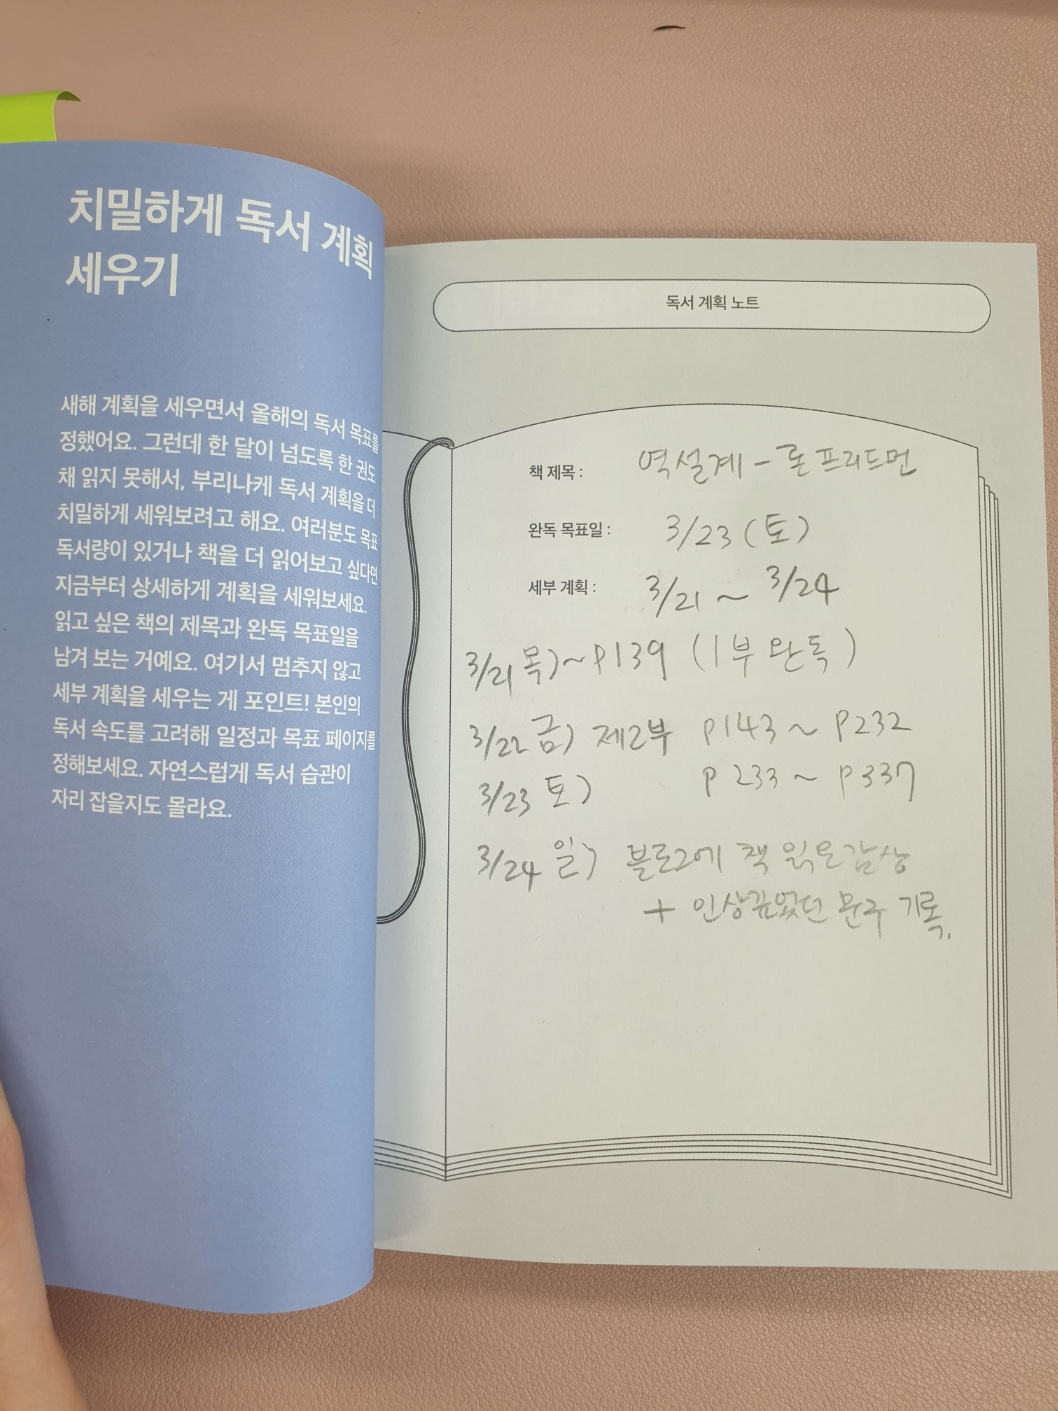 치밀하게 독서 계획
세우기
새해 계획을 세우면서 올해의 독서 목표를
정했어요. 그런데 한 달이 넘도록 한 권도
채 읽지 못해서, 부리나케 독서 계획을 더
치밀하게 세워보려고 해요. 여러분도 목표
독서량이 있거나 책을 더 읽어보고 싶다면
지금부터 상세하게 계획을 세워보세요.
읽고 싶은 책의 제목과 완독 목표일을
남겨 보는 거예요. 여기서 멈추지 않고
세부 계획을 세우는 게 포인트! 본인의
독서 속도를 고려해 일정과 목표 페이지를
정해보세요. 자연스럽게 독서 습관이
자리 잡을지도 몰라요.
독서 계획 노트
책 제목 : 역설계 - 론 프리드먼
완독 목표일 : 3/23 (토)
세부 계획 : 3/21 ~ 3/24
3/21 목) ~ P139 (1부 완독)
3/22 금) 제2부 P143 ~ P232
3/23 토) P 233 ~ P337
3/24 일) 블로그에 책 읽은 감상
+ 인상깊었던 문구 기록.